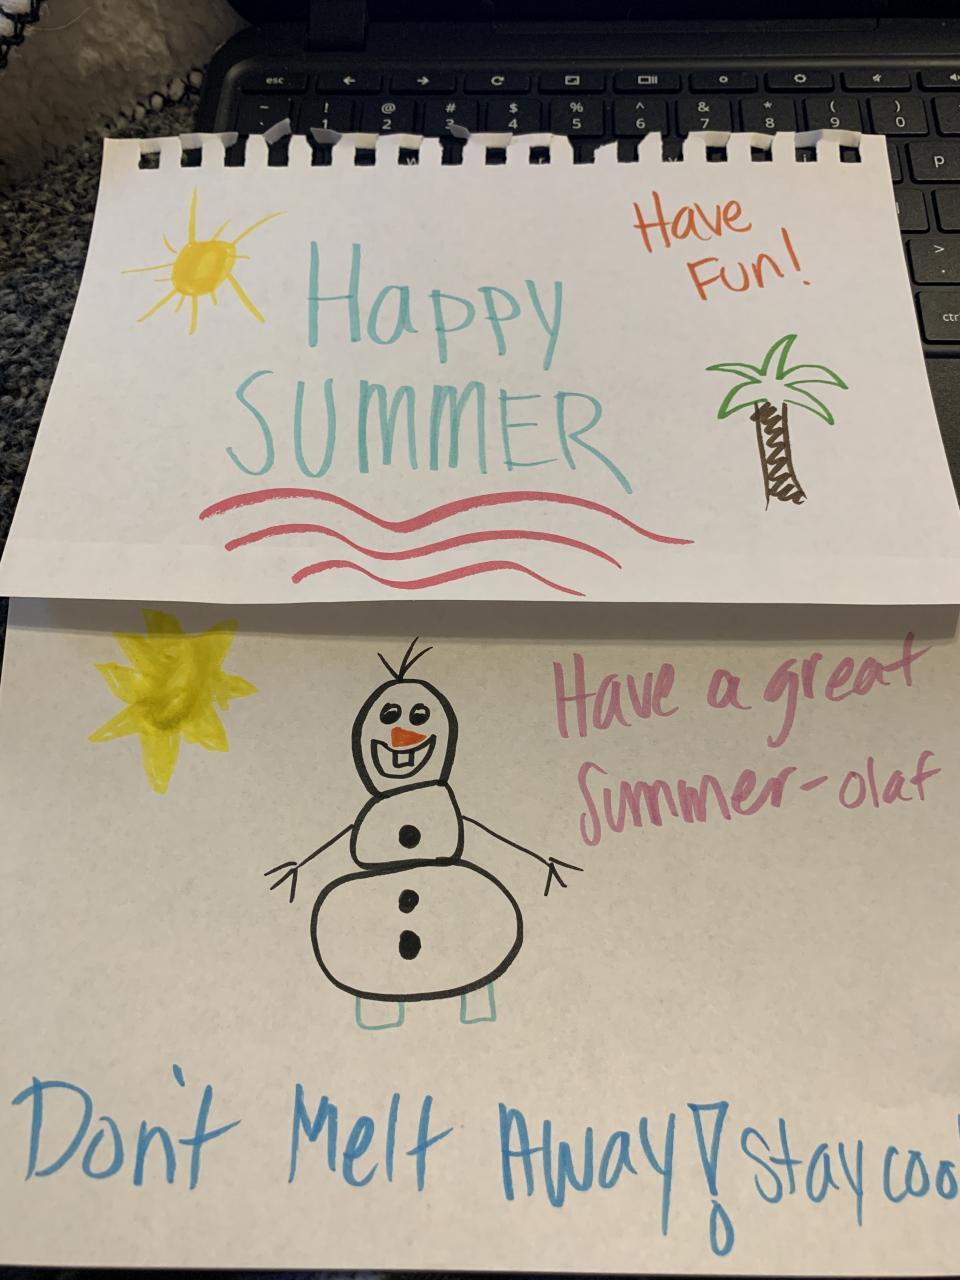 esc
~ ! @ # $ % ^ & * ( )
` 1 2 3 4 5 6 7 8 9 0
p
>
.
ctr
Have
Fun!
Happy
SUMMER
Have a great
Summer-olaf
Don't Melt Away! stay coo